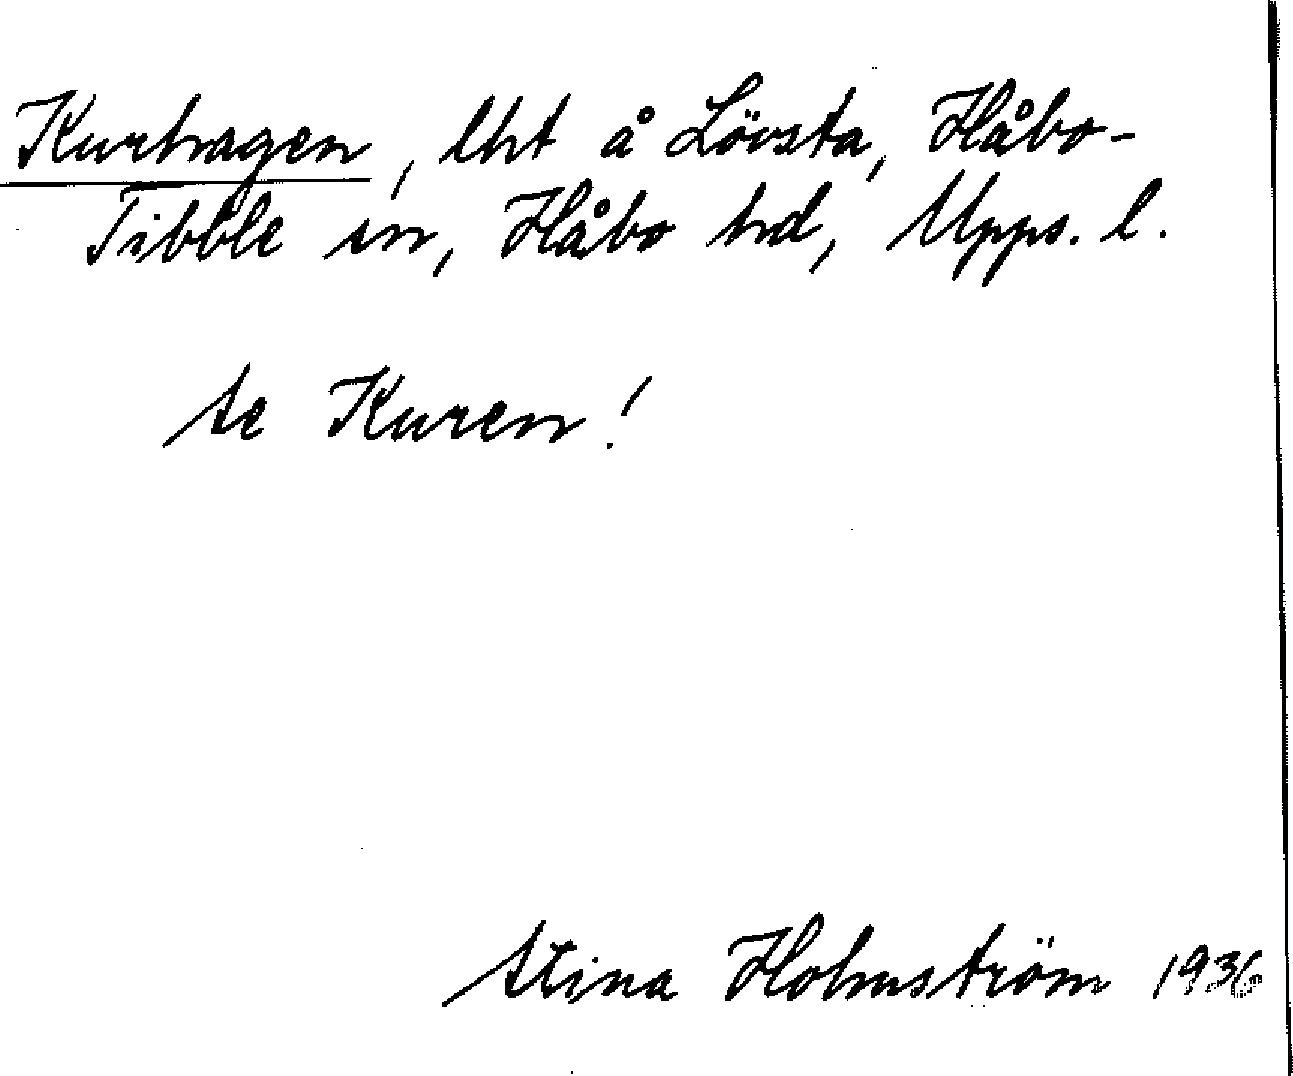 Kurhagen, lht å Lövsta, Håbo-
Tibble sn, Håbo hd, Upps. l.
Se Kuren!
Stina Holmström 1936